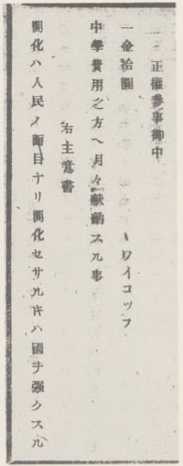 正権参事御中
一金拾圓
ワイコッフ
中學費用之方ヘ月々献納スル事
右主意書
開化ハ人民ノ眼目ナリ開化セサル時ハ國ヲ強クスル